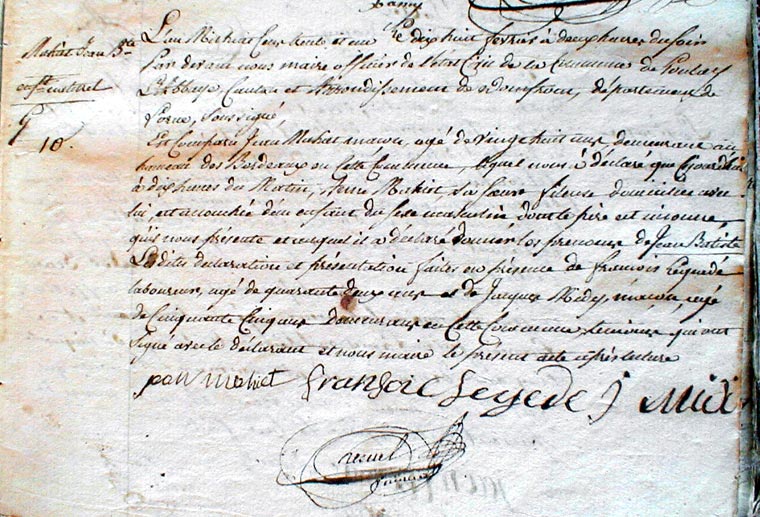 Mahiet Jean Bte
enft naturel
G
10.
L'an Mil huit Cent trente et un le dix huit fevrier à deux heures du soir
Par devant nous maire officier de l'etat Civil de la Commune de
L'Abbaye, Canton et Arrondissement de Domfront, département de
l'orne, soussigné,
Est Comparu Jean Mahiet macon, agé de vingt huit ans demeurant au
hameau des Bordeaux en Cette Commune, lequel nous à déclaré que
à dix heures du Matin, Mahiet, Sa Sœur fileuse domiciliée avec
lui, est accouchée d'un enfant du sexe masculin dont le père est inconnu
qu'il nous présente et auquel il a déclaré donner les prenoms de Jean Batiste
Lesdites déclaration et présentation faites en présence de francois
laboureur, agé de quarante deux ans et de Jacques, macon, agé
de Cinquante Cinq ans demeurans en Cette Commune, temoins qui ont
signé avec le déclarant et nous maire le présent acte après lecture
Mahiet françois Legede J Midi